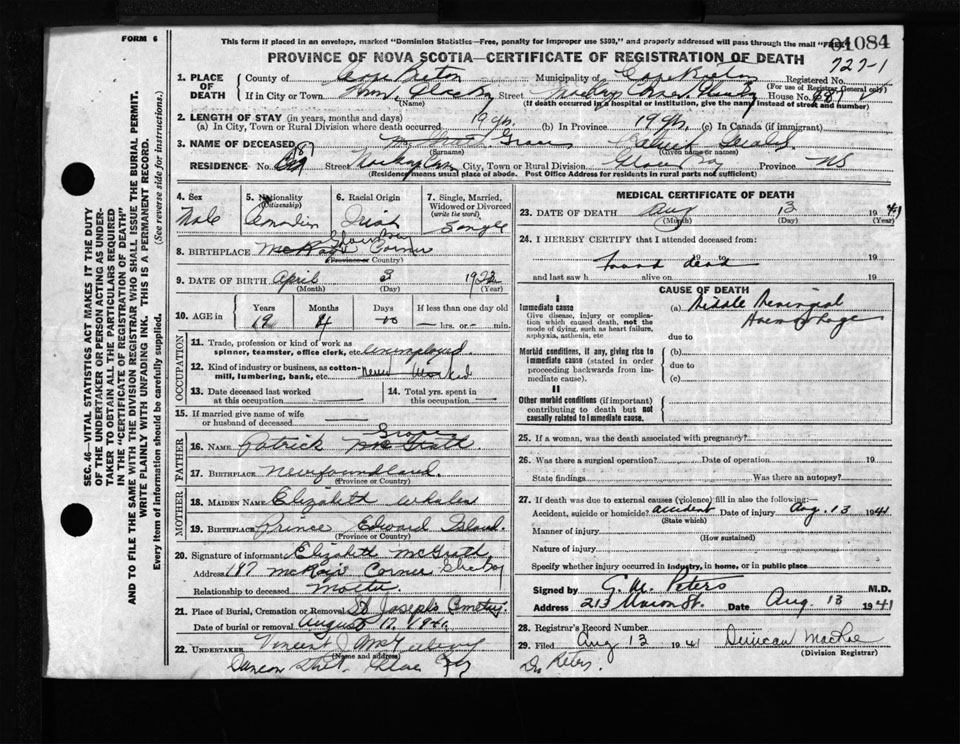 FORM 6
This form if placed in an envelope, marked "Dominion Statistics—Free, penalty for improper use $300," and properly addressed will pass through the mail "FREE"
01084
PROVINCE OF NOVA SCOTIA—CERTIFICATE OF REGISTRATION OF DEATH
727-1
1. PLACE OF DEATH
County of Cape Breton Municipality of Cape Breton Registered No.
(For use of Registrar General only)
If in City or Town Street House No.
(Name) (If death occurred in a hospital or institution, give the name instead of street and number)
2. LENGTH OF STAY (in years, months and days)
(a) In City, Town or Rural Division where death occurred 19 yrs. (b) In Province 19 yrs. (c) In Canada (if immigrant)
3. NAME OF DECEASED
(Surname) (Given name or names)
RESIDENCE No. Street City, Town or Rural Division Glace Bay Province NS
(Residence means usual place of abode. Post Office Address for residents in rural parts not sufficient)
4. Sex Male
5. Nationality (Citizenship) Canadian
6. Racial Origin Irish
7. Single, Married, Widowed or Divorced (write the word) Single
8. BIRTHPLACE Corner
(Province or Country)
9. DATE OF BIRTH April 3 1922
(Month) (Day) (Year)
10. AGE Years 19 Months 4 Days 00 If less than one day old
— hrs. or — min.
OCCUPATION
11. Trade, profession or kind of work as spinner, teamster, office clerk, etc. unemployed.
12. Kind of industry or business, as cotton-mill, lumbering, bank, etc. never worked
13. Date deceased last worked at this occupation —
14. Total yrs. spent in this occupation —
15. If married give name of wife or husband of deceased —
FATHER
16. NAME Patrick McGrath
17. BIRTHPLACE Newfoundland
MOTHER
18. MAIDEN NAME Elizabeth Whalen
19. BIRTHPLACE Prince Edward Island.
(Province or Country)
20. Signature of informant Elizabeth McGrath
Address 187 McKay's Corner Glace Bay
Relationship to deceased Mother
21. Place of Burial, Cremation or Removal St Joseph's Cemetery.
Date of burial or removal August 17, 1941.
22. UNDERTAKER Vincent J
(Name and address)
Glace Bay
MEDICAL CERTIFICATE OF DEATH
23. DATE OF DEATH Aug 13 1941
(Month) (Day) (Year)
24. I HEREBY CERTIFY that I attended deceased from:
19 to 19
found dead
and last saw h alive on 19
CAUSE OF DEATH
I
Immediate cause
Give disease, injury or complication which caused death, not the mode of dying, such as heart failure, asphyxia, asthenia, etc
(a) Middle Meningial
Hemorrhage
due to
Morbid conditions, if any, giving rise to immediate cause (stated in order proceeding backwards from immediate cause).
(b)
due to
(c)
II
Other morbid conditions (if important) contributing to death but not causally related to immediate cause.
25. If a woman, was the death associated with pregnancy?
26. Was there a surgical operation? Date of operation 19
State findings Was there an autopsy?
27. If death was due to external causes (violence) fill in also the following:—
Accident, suicide or homicide? accident Date of injury Aug. 13 1941
(State which)
Manner of injury
(How sustained)
Nature of injury
Specify whether injury occurred in industry, in home, or in public place
Signed by G. M. Peters M.D.
Address 213 Union St. Date Aug. 13 1941
28. Registrar's Record Number
29. Filed Aug 13 1941 Duncan MacRae
(Division Registrar)
Dr Peters.
SEC. 46—VITAL STATISTICS ACT MAKES IT THE DUTY
OF THE UNDERTAKER OR PERSON ACTING AS UNDER-
TAKER TO OBTAIN ALL THE PARTICULARS REQUIRED
IN THE "CERTIFICATE OF REGISTRATION OF DEATH"
AND TO FILE THE SAME WITH THE DIVISION REGISTRAR WHO SHALL ISSUE THE BURIAL PERMIT.
WRITE PLAINLY WITH UNFADING INK. THIS IS A PERMANENT RECORD.
Every item of information should be carefully supplied. (See reverse side for instructions.)